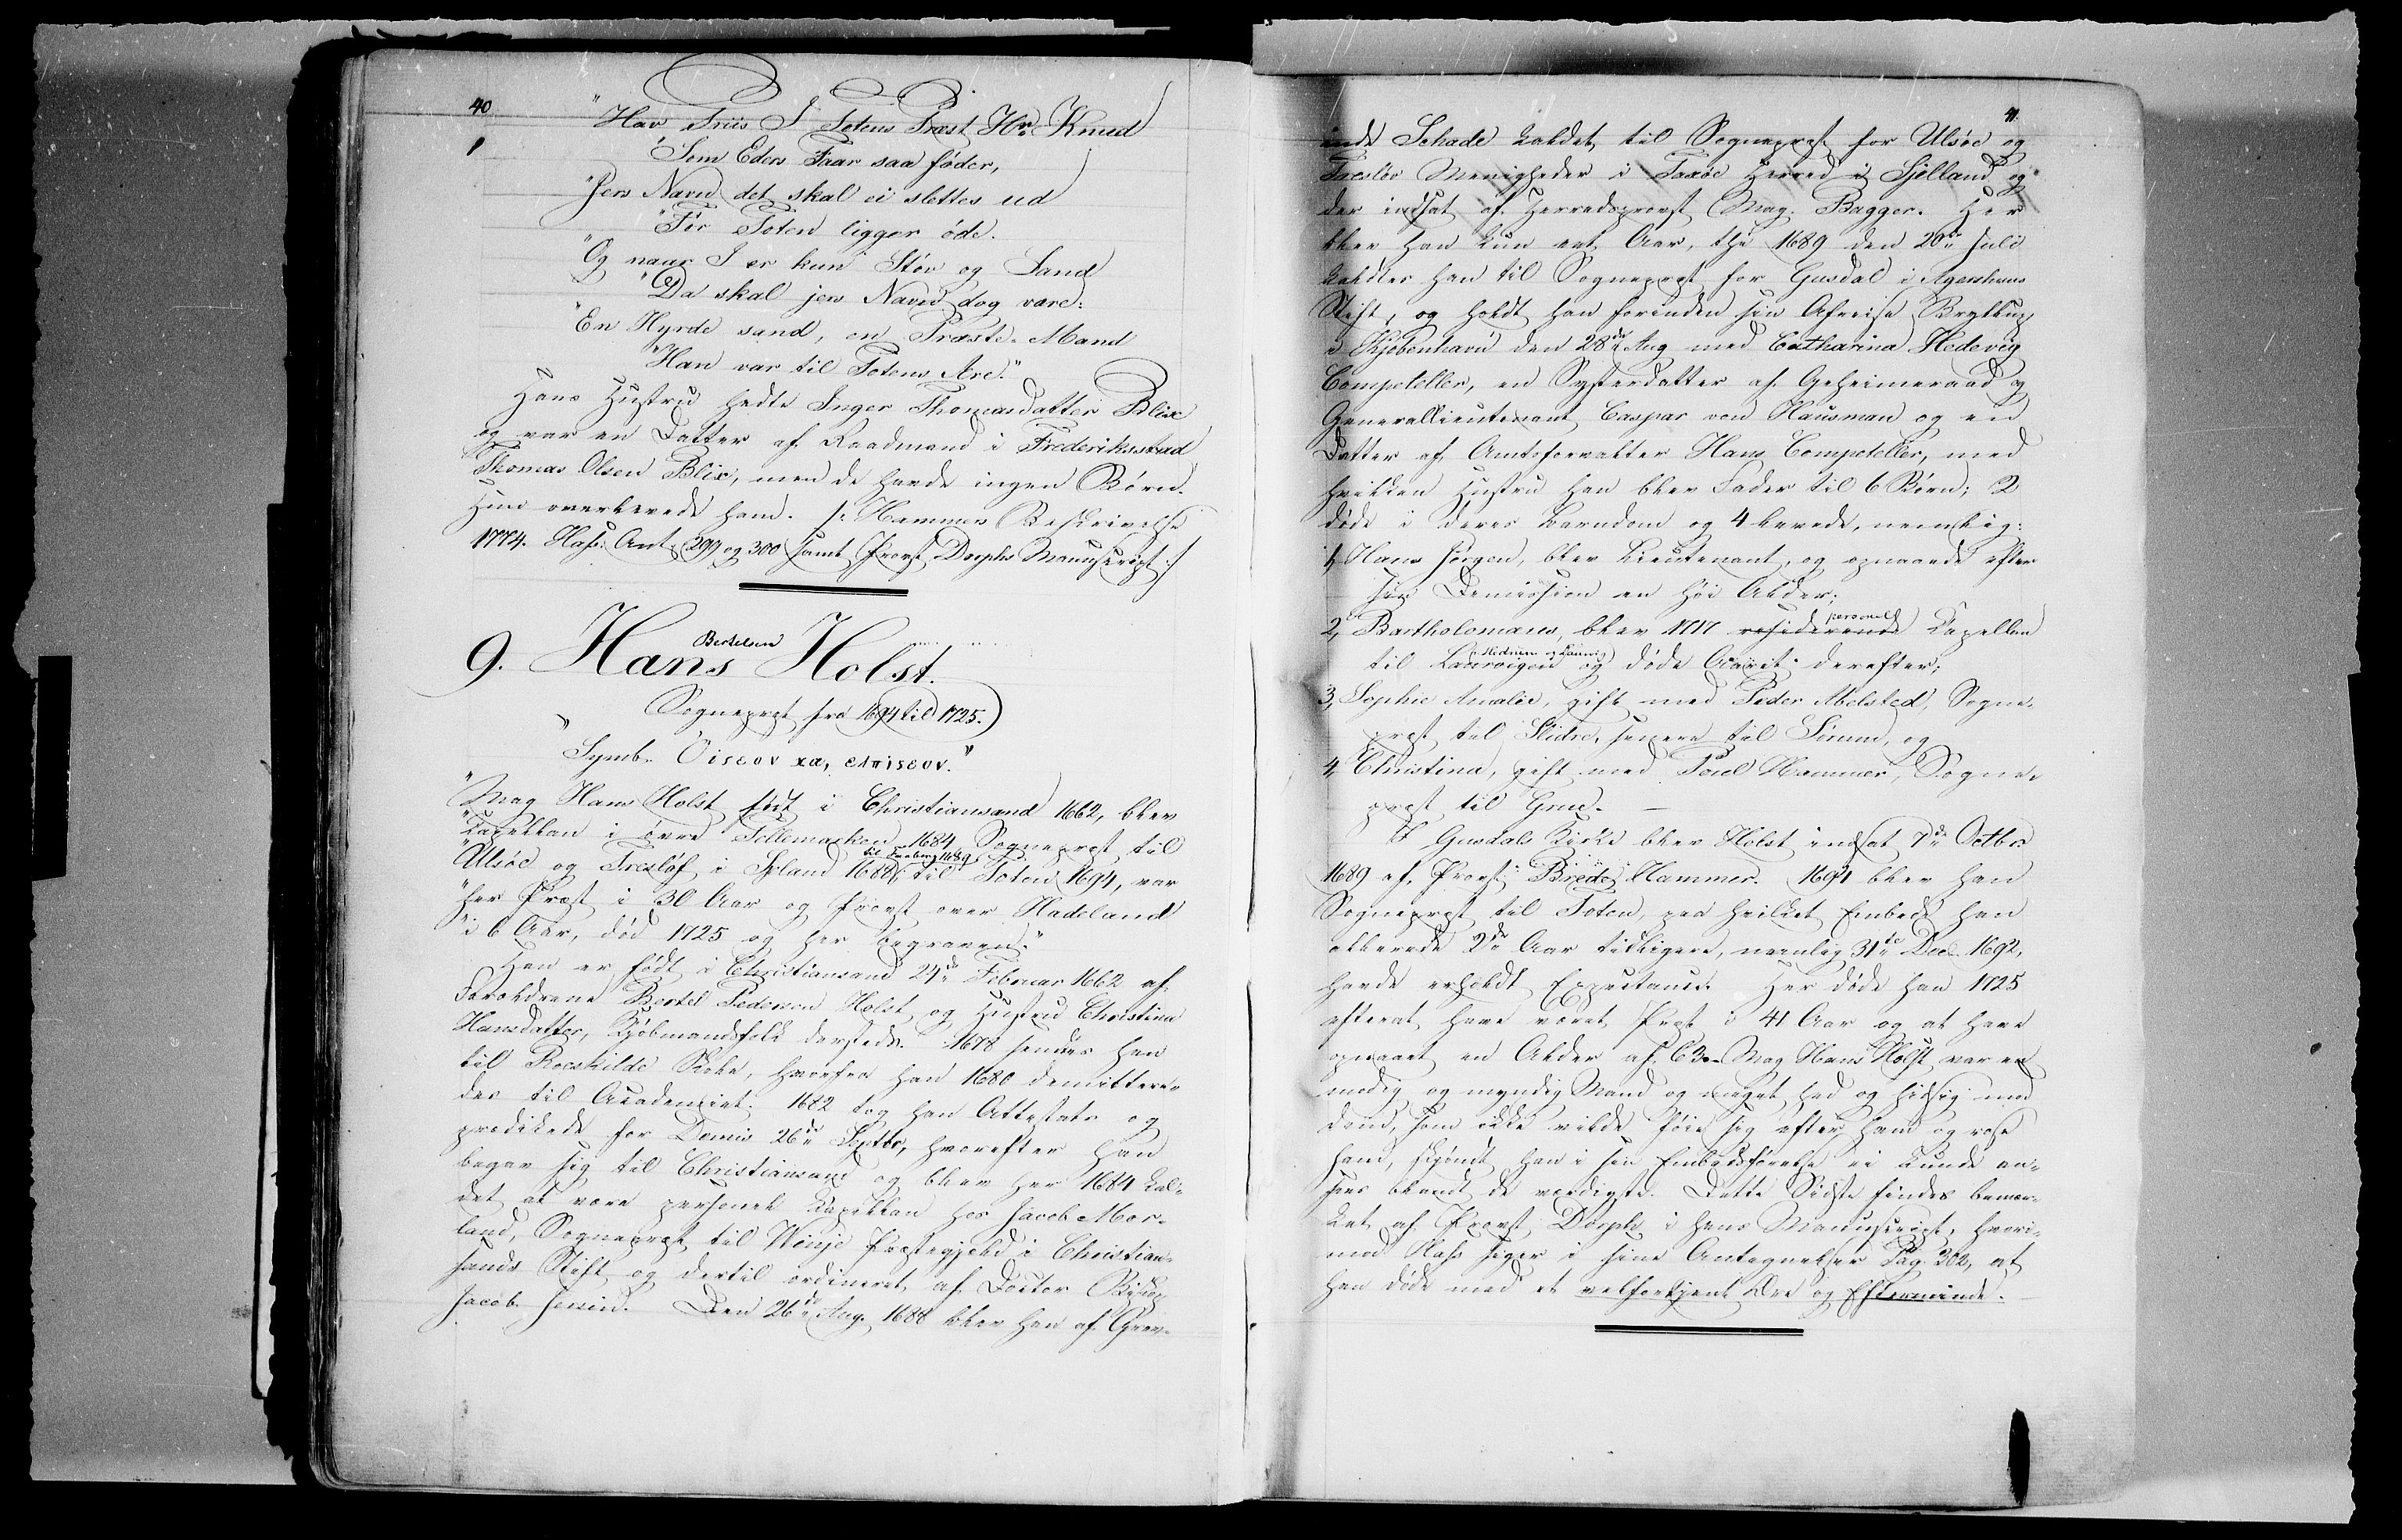 40.
"Hav Priis I Totens Præst Hr. Knud
"Som Eders Faar saa føder,
"Jers Navn det skal ei slettes ud
"Før Toten ligger øde.
"Og naar I er kun Støv og Sand
"Da skal jers Navn dog være:
"En Hyrde sand, en Præste-Mand
"Han var til Totens Ære."
Hans Hustru hedte Inger Thomasdatter Blix
og var en Datter af Raadmand i Frederiksstad
Thomas Olsen Blix, men de havde ingen Børn.
Hun overlevede ham. /: Hammers Beskrivelse
1774. Hafs: Ant. 299 og 300 samt Provst Dorphs Manuscript :/
9. Hans Bertelsen Holst.
Sogneprest fra 1694 til 1725.
"Symb. Οίσεον και ελπισεον."
"Mag Hans Holst født i Christiansand 1662, blev
"Kapellan i øvre Tellemarken 1684 Sogneprest til
"Ulsøe og Fresløf i Sjeland 1688, til Faaberg 1689, til Toten 1694, var
"her Prest i 30 Aar og Provst over Hadeland
"i 6 Aar, død 1725 og her begraven."
Han er født i Christiansand 24de Februar 1662 af
Forældrene Bertel Pedersen Holst og Hustru Christina
Hansdatter, Kjøbmandsfolk dersteds. 1678 sendtes han
til Roeskilde Skole, hvorfra han 1680 demittere-
des til Academiet. 1682 tog han Attestats og
prædikede for Demis 26de Septbr, hvorefter han
begav sig til Christiansand og blev her 1684 kal-
det at være personel Kapellan hos Jacob Mor-
land, Sogneprest til Winje Prestegjeld i Christian-
sands Stift og dertil ordineret af Doctor Biskop
Jacob Jersin. Den 26de Aug. 1688 blev han af Grev-
41.
inde Schade kaldet til Sogneprest for Ulsøe og
Fresløv Menigheder i Faxøe Herred i Sjelland og
der indsat af Herredsprovst Mag. Bagger. Her
blev han kun eet Aar, thi 1689 den 20de Juli
kaldtes han til Sogneprest for Gusdal i Agershuus
Stift, og holdt han forinden sin Afreise Bryllup
i Kjøbenhavn den 28de Aug med Catharina Hedevig
Competeller, en Systerdatter af Geheimeraad og
Generallieutenant Caspar von Hausman og en
Datter af Amtsforvalter Hans Competeller, med
hvilken Hustru han blev Fader til 6 Børn; 2
døde i deres Barndom og 4 levede, nemlig:
1, Hans Jørgen, blev Lieutenant, og opnaaede efter
sin Demission en høi Alder;
2, Bartholomæus, blev 1717 residerende personel Kapellan
til Laurvigen (Hedrum og Laurvig) og døde Aaret derefter;
3, Sophie Amalie, gift med Peder Abelsted, Sogne-
prest til Slidre, senere til Lomm, og
4, Christina, gift med Poul Hammer, Sogne-
prest til Grue. —
I Gusdals Kirke blev Holst indsat 7de Octbr
1689 af Provst Brede Hammer. 1694 blev han
Sogneprest til Toten, paa hvilket Embede han
allerede 2de Aar tidligere, nemlig 31te Dec. 1692,
havde erholdt Expectance. Her døde han 1725
efterat have været Prest i 41 Aar og at have
opnaaet en Alder af 63. Mag Hans Holst var en
modig og myndig Mand og meget hed og hidsig mod
dem, som ikke vilde føie sig efter ham og rose
ham, skjøndt han i sin Embedsførelse ei kunde an-
sees blandt de værdigste. Dette Sidste findes bemær-
ket af Provst Dorph i hans Manuscript, hvori-
mod Hafs siger i sine Antegnelser Pag. 302, at
han døde med et velfortjent Ære og Efterminde.